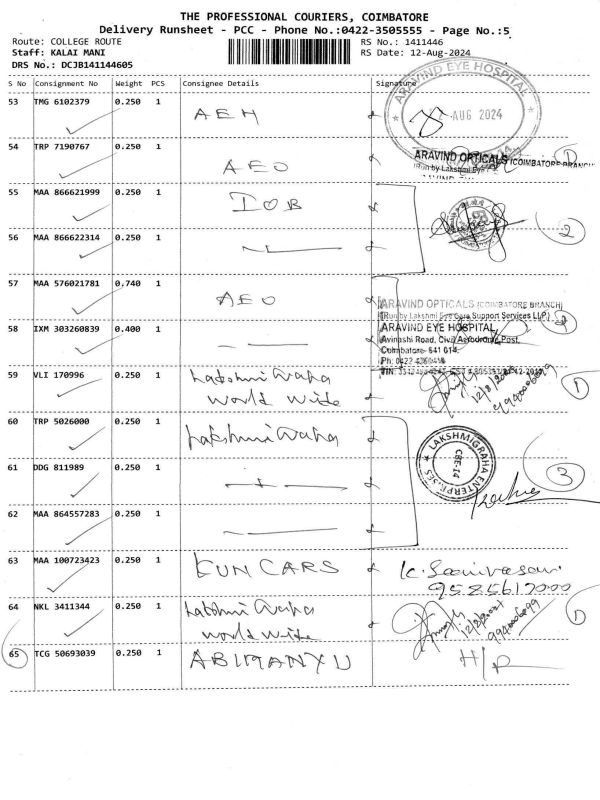 THE PROFESSIONAL COURIERS, COIMBATORE
Delivery Runsheet - PCC - Phone No.:0422-3505555 - Page No.:5
Route: COLLEGE ROUTE
RS No.: 1411446
Staff: KALAI MANI
RS Date: 12-Aug-2024
DRS No.: DCJB141144605
S No Consignment No Weight PCS Consignee Details Signature
53 TMG 6102379 0.250 1 AEH
ARAVIND EYE HOSPITAL
AUG 2024
54 TRP 7190767 0.250 1 AEO
ARAVIND OPTICALS (COIMBATORE BRANCH)
(Run by Lakshmi Eye
1
55 MAA 866621999 0.250 1 IOB
2
56 MAA 866622314 0.250 1
57 MAA 576021781 0.740 1 AEO
ARAVIND OPTICALS (COIMBATORE BRANCH)
(Run by Lakshmi Eye Care Support Services LLP)
2
58 IXM 303260839 0.400 1
ARAVIND EYE HOSPITAL,
Avinashi Road, Civil Aerodrome Post,
Coimbatore- 641 014.
Ph: 0422-4360416
59 VLI 170996 0.250 1 Lakshmi Graha
World Wide
9940006899
1
60 TRP 5026000 0.250 1 Lakshmi Graha
LAKSHMIGRAHA ENTERPRISES
CBE-14
61 DDG 811989 0.250 1
3
62 MAA 864557283 0.250 1
63 MAA 100723423 0.250 1 KUN CARS
K. Srinivasan
9585617000
64 NKL 3411344 0.250 1 Lakshmi Graha
World Wide
12/8/2024
9940006899
1
65 TCG 50693039 0.250 1 ABIMANYU
H/R